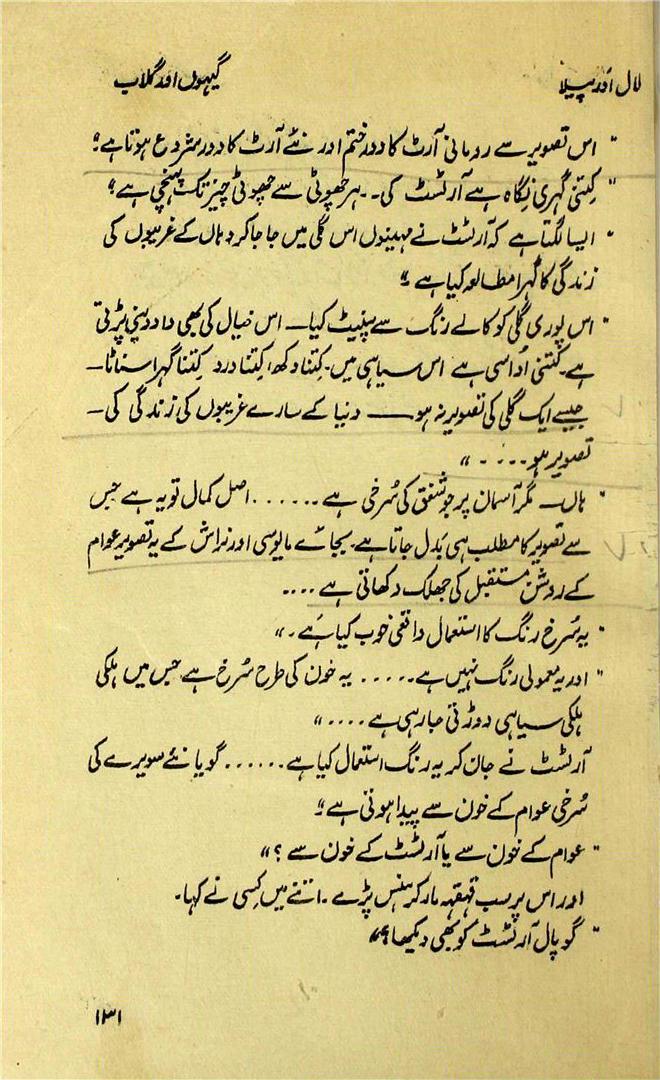 لال اور پیلا
گیہوں اور گلاب
" اس تصویر سے رومانی آرٹ کا دور ختم اور نئے آرٹ کا دور شروع ہوتا ہے "
" کتنی گہری نگاہ ہے آرٹسٹ کی۔۔ ہر چھوٹی سے چھوٹی چیز تک پہنچی ہے "
" ایسا لگتا ہے کہ آرٹسٹ نے مہینوں اس گلی میں جا جا کر وہاں کے غریبوں کی
زندگی کا گہرا مطالعہ کیا ہے "
" اس پوری گلی کو کالے رنگ سے پینٹ کیا — اس خیال کی بھی داد دینی پڑتی
ہے۔ کتنی اُداسی ہے اس سیاہی میں۔ کِتنا دکھ، کِتنا درد کِتنا گہرا سناٹا —
جیسے ایک گلی کی تصویر نہ ہو —— دنیا کے سارے غریبوں کی زندگی کی —
تصویر ہو .... "
" ہاں — مگر آسمان پر جو شفق کی سُرخی ہے ...... اصل کمال تو یہ ہے جس
سے تصویر کا مطلب ہی بَدل جاتا ہے۔ بجائے مایوسی اور نراش کے یہ تصویر عوام
کے روشن مستقبل کی جھلک دکھاتی ہے ....
" یہ سُرخ رنگ کا استعمال واقعی خوب کیا ہے۔ "
" اور یہ معمولی رنگ نہیں ہے ..... یہ خون کی طرح سُرخ ہے جس میں ہلکی
ہلکی سیاہی دوڑتی جا رہی ہے .... "
آرٹسٹ نے جان کر یہ رنگ استعمال کیا ہے ...... گویا نئے سویرے کی
سُرخی عوام کے خون سے پیدا ہوتی ہے "
" عوام کے خون سے یا آرٹسٹ کے خون سے ؟ "
اور اس پر سب قہقہہ مار کر ہنس پڑے۔ اتنے میں کِسی نے کہا۔
" گوپال آرٹسٹ کو بھی دیکھا؟ "
۱۳۱